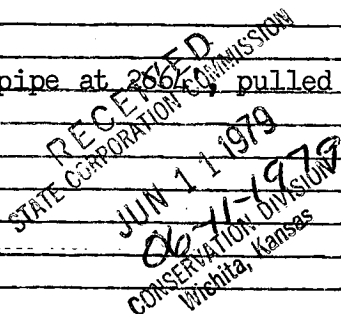 pipe at 2664', pulled
RECEIVED
STATE CORPORATION COMMISSION
JUN 11 1979
06-11-1979
CONSERVATION DIVISION
Wichita, Kansas